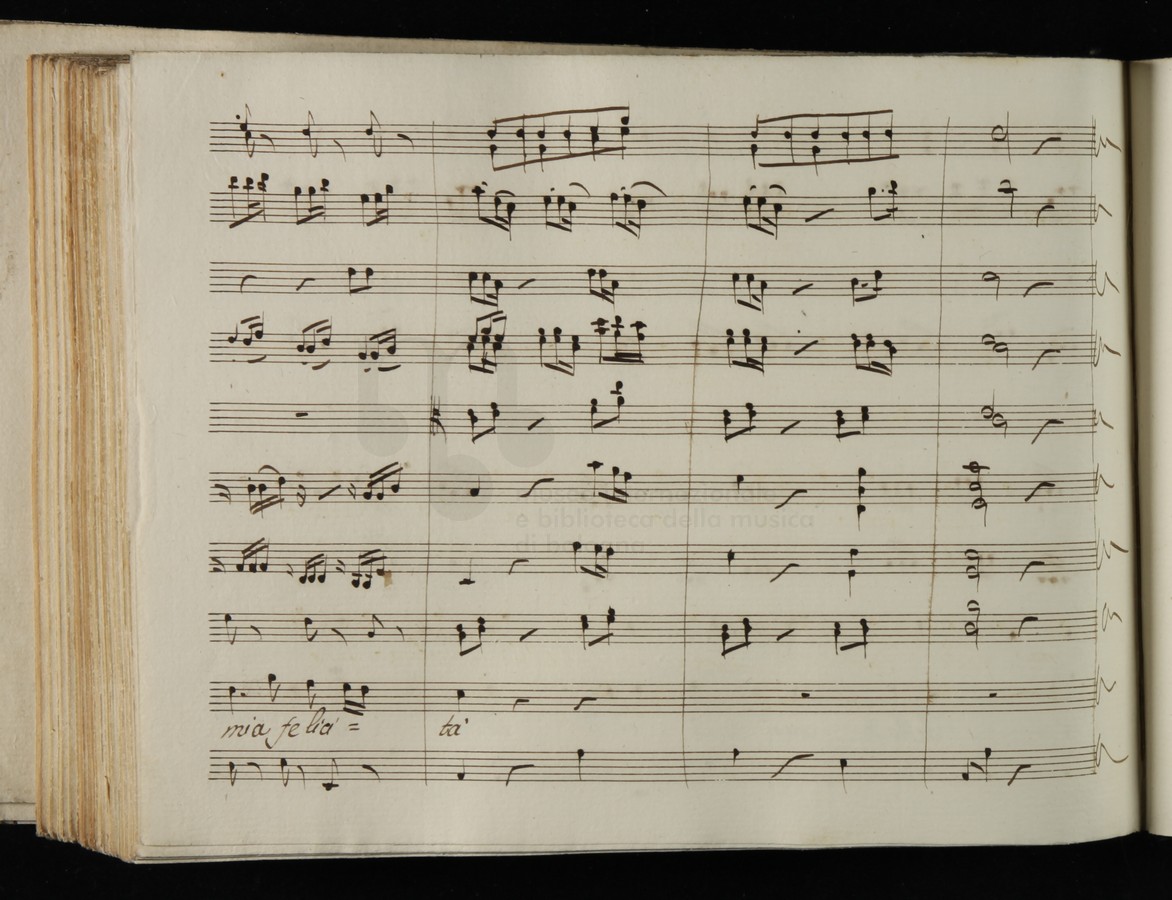 museo internazionale
e biblioteca della musica
di bologna
mia felici = tà